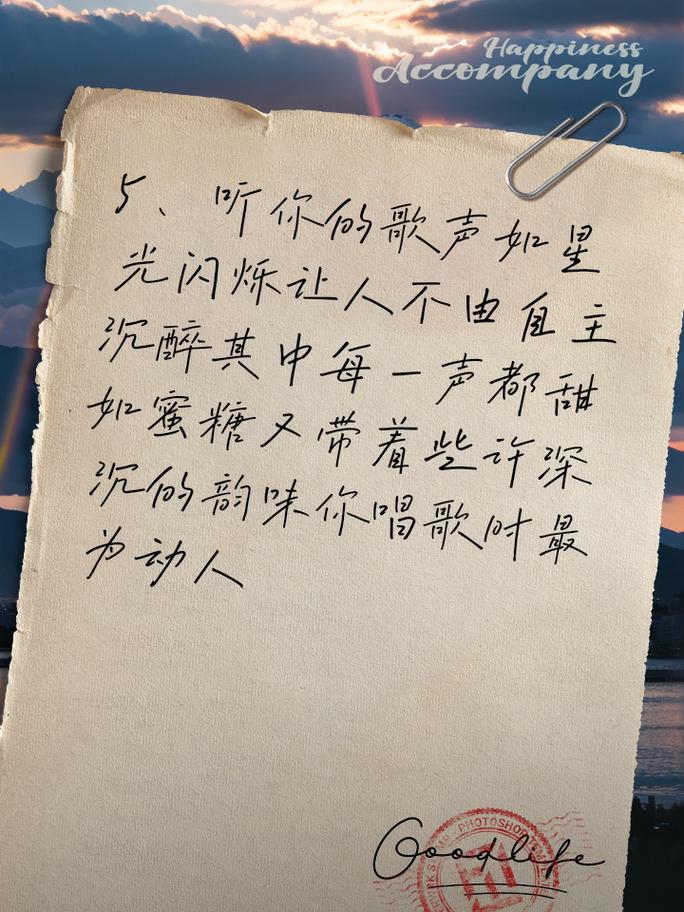 Happiness
Accompany
5、听你的歌声如星
光闪烁让人不由自主
沉醉其中每一声都甜
如蜜糖又带着些许深
沉的韵味你唱歌时最
为动人
PHOTOSHOP
Goodlife